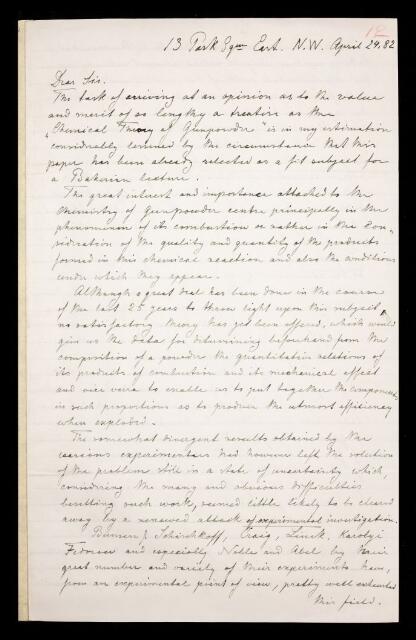 12
13 Park Sqre East. N.W. April 29. 82
Dear Sir.
The task of arriving at an opinion as to the value
and merit of so lengthy a treatise as the
"Chemical Theory of Gunpowder" is in my estimation
considerably lessened by the circumstance that this
paper has been already selected as a fit subject for
a Bakerian lecture.
The great interest and importance attached to the
chemistry of Gunpowder centre principally in the
phenomenon of its combustion or rather in the Con-
sideration of the quality and quantity of the products
formed in this chemical reaction and also the conditions
under which they appear.
Although a great deal has been done in the course
of the last 25 years to throw light upon this subject,
no satisfactory theory has yet been offered, which would
give us the data for determining beforehand from the
composition of a powder the quantitative relations of
its products of combustion and its mechanical effect
and vice versa to enable us to put together the components
in such proportions as to produce the utmost efficiency
when exploded.
The somewhat divergent results obtained by the
various experimenters had however left the solution
of the problem still in a state of uncertainty which,
considering the many and obvious difficulties
besetting such work, seemed little likely to be cleared
away by a renewed attack of experimental investigation.
Bunsen & Schischkoff, Craig, Linck, Karolyi
Federow and especially Noble and Abel by their
great number and variety of their experiments have,
from an experimental point of view, pretty well exhausted
this field.